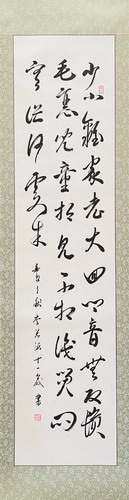 少小離家老大回乡音無改鬢
毛衰兒童相見不相識笑問
客從何處來
秋 李 十一歲 書